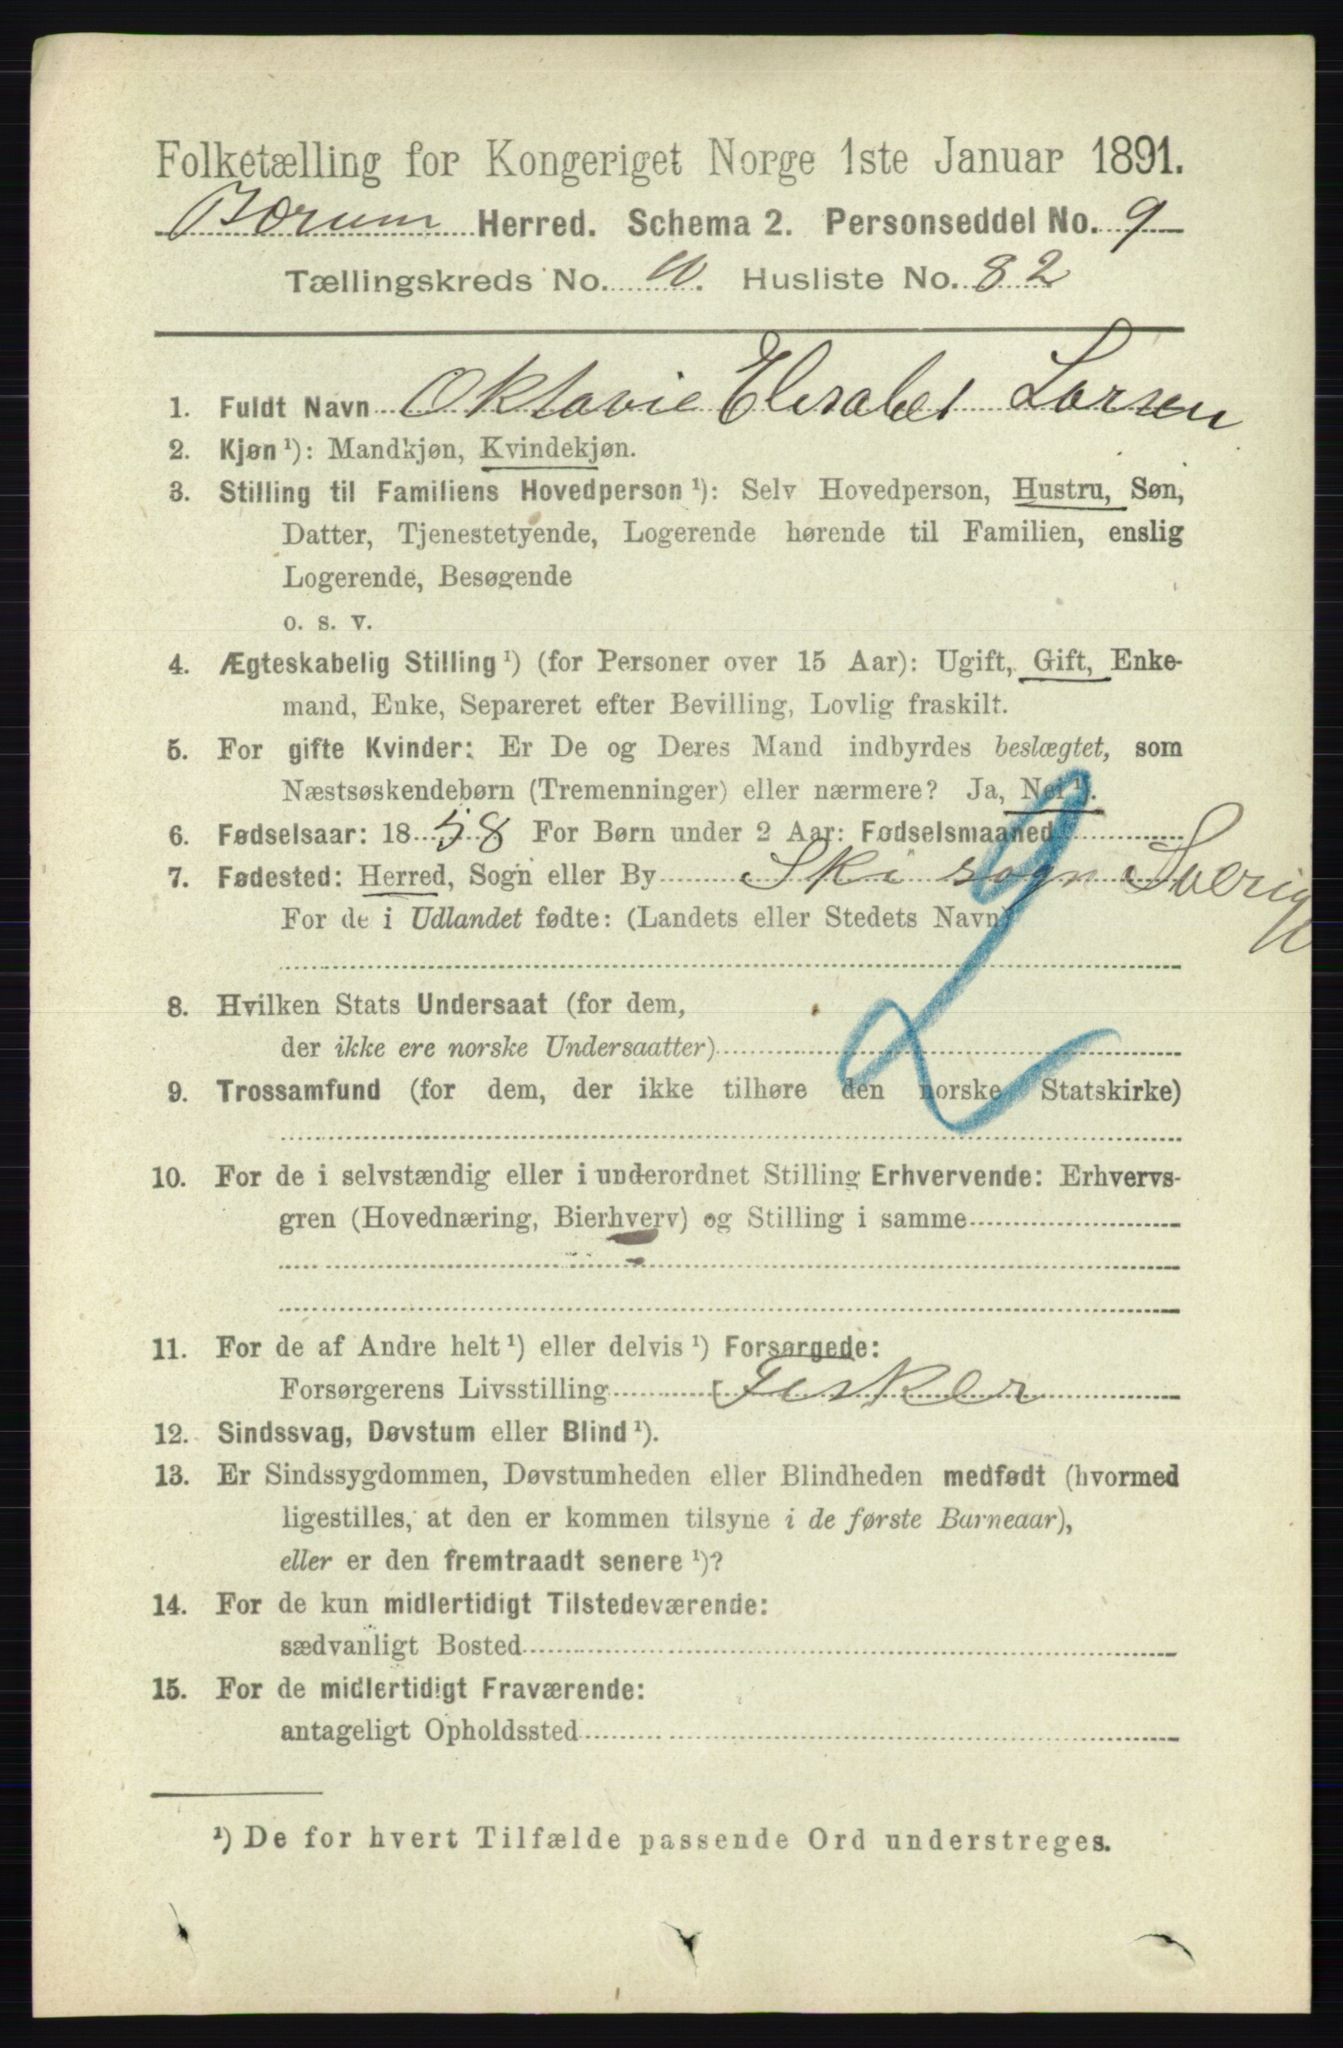 Folketælling for Kongeriget Norge 1ste Januar 1891.
Bærum Herred. Schema 2. Personseddel No. 9
Tællingskreds No. 10. Husliste No. 82
1. Fuldt Navn Oktavie Elisabet Larsen
2. Kjøn ¹): Mandkjøn, Kvindekjøn.
3. Stilling til Familiens Hovedperson ¹): Selv Hovedperson, Hustru, Søn,
Datter, Tjenestetyende, Logerende hørende til Familien, enslig
Logerende, Besøgende
o. s. v.
4. Ægteskabelig Stilling ¹) (for Personer over 15 Aar): Ugift, Gift, Enke-
mand, Enke, Separeret efter Bevilling, Lovlig fraskilt.
5. For gifte Kvinder: Er De og Deres Mand indbyrdes beslægtet, som
Næstsøskendebørn (Tremenninger) eller nærmere? Ja, Nei ¹).
6. Fødselsaar: 1858 For Børn under 2 Aar: Fødselsmaaned
7. Fødested: Herred, Sogn eller By Ski sogn Sverige
For de i Udlandet fødte: (Landets eller Stedets Navn)
8. Hvilken Stats Undersaat (for dem,
der ikke ere norske Undersaatter)
9. Trossamfund (for dem, der ikke tilhøre den norske Statskirke)
10. For de i selvstændig eller i underordnet Stilling Erhvervende: Erhvervs-
gren (Hovednæring, Bierhverv) og Stilling i samme
11. For de af Andre helt ¹) eller delvis ¹) Forsørgede:
Forsørgerens Livsstilling Fisker
12. Sindssvag, Døvstum eller Blind ¹).
13. Er Sindssygdommen, Døvstumheden eller Blindheden medfødt (hvormed
ligestilles, at den er kommen tilsyne i de første Barneaar),
eller er den fremtraadt senere ¹)?
14. For de kun midlertidigt Tilstedeværende:
sædvanligt Bosted
15. For de midlertidigt Fraværende:
antageligt Opholdssted
¹) De for hvert Tilfælde passende Ord understreges.